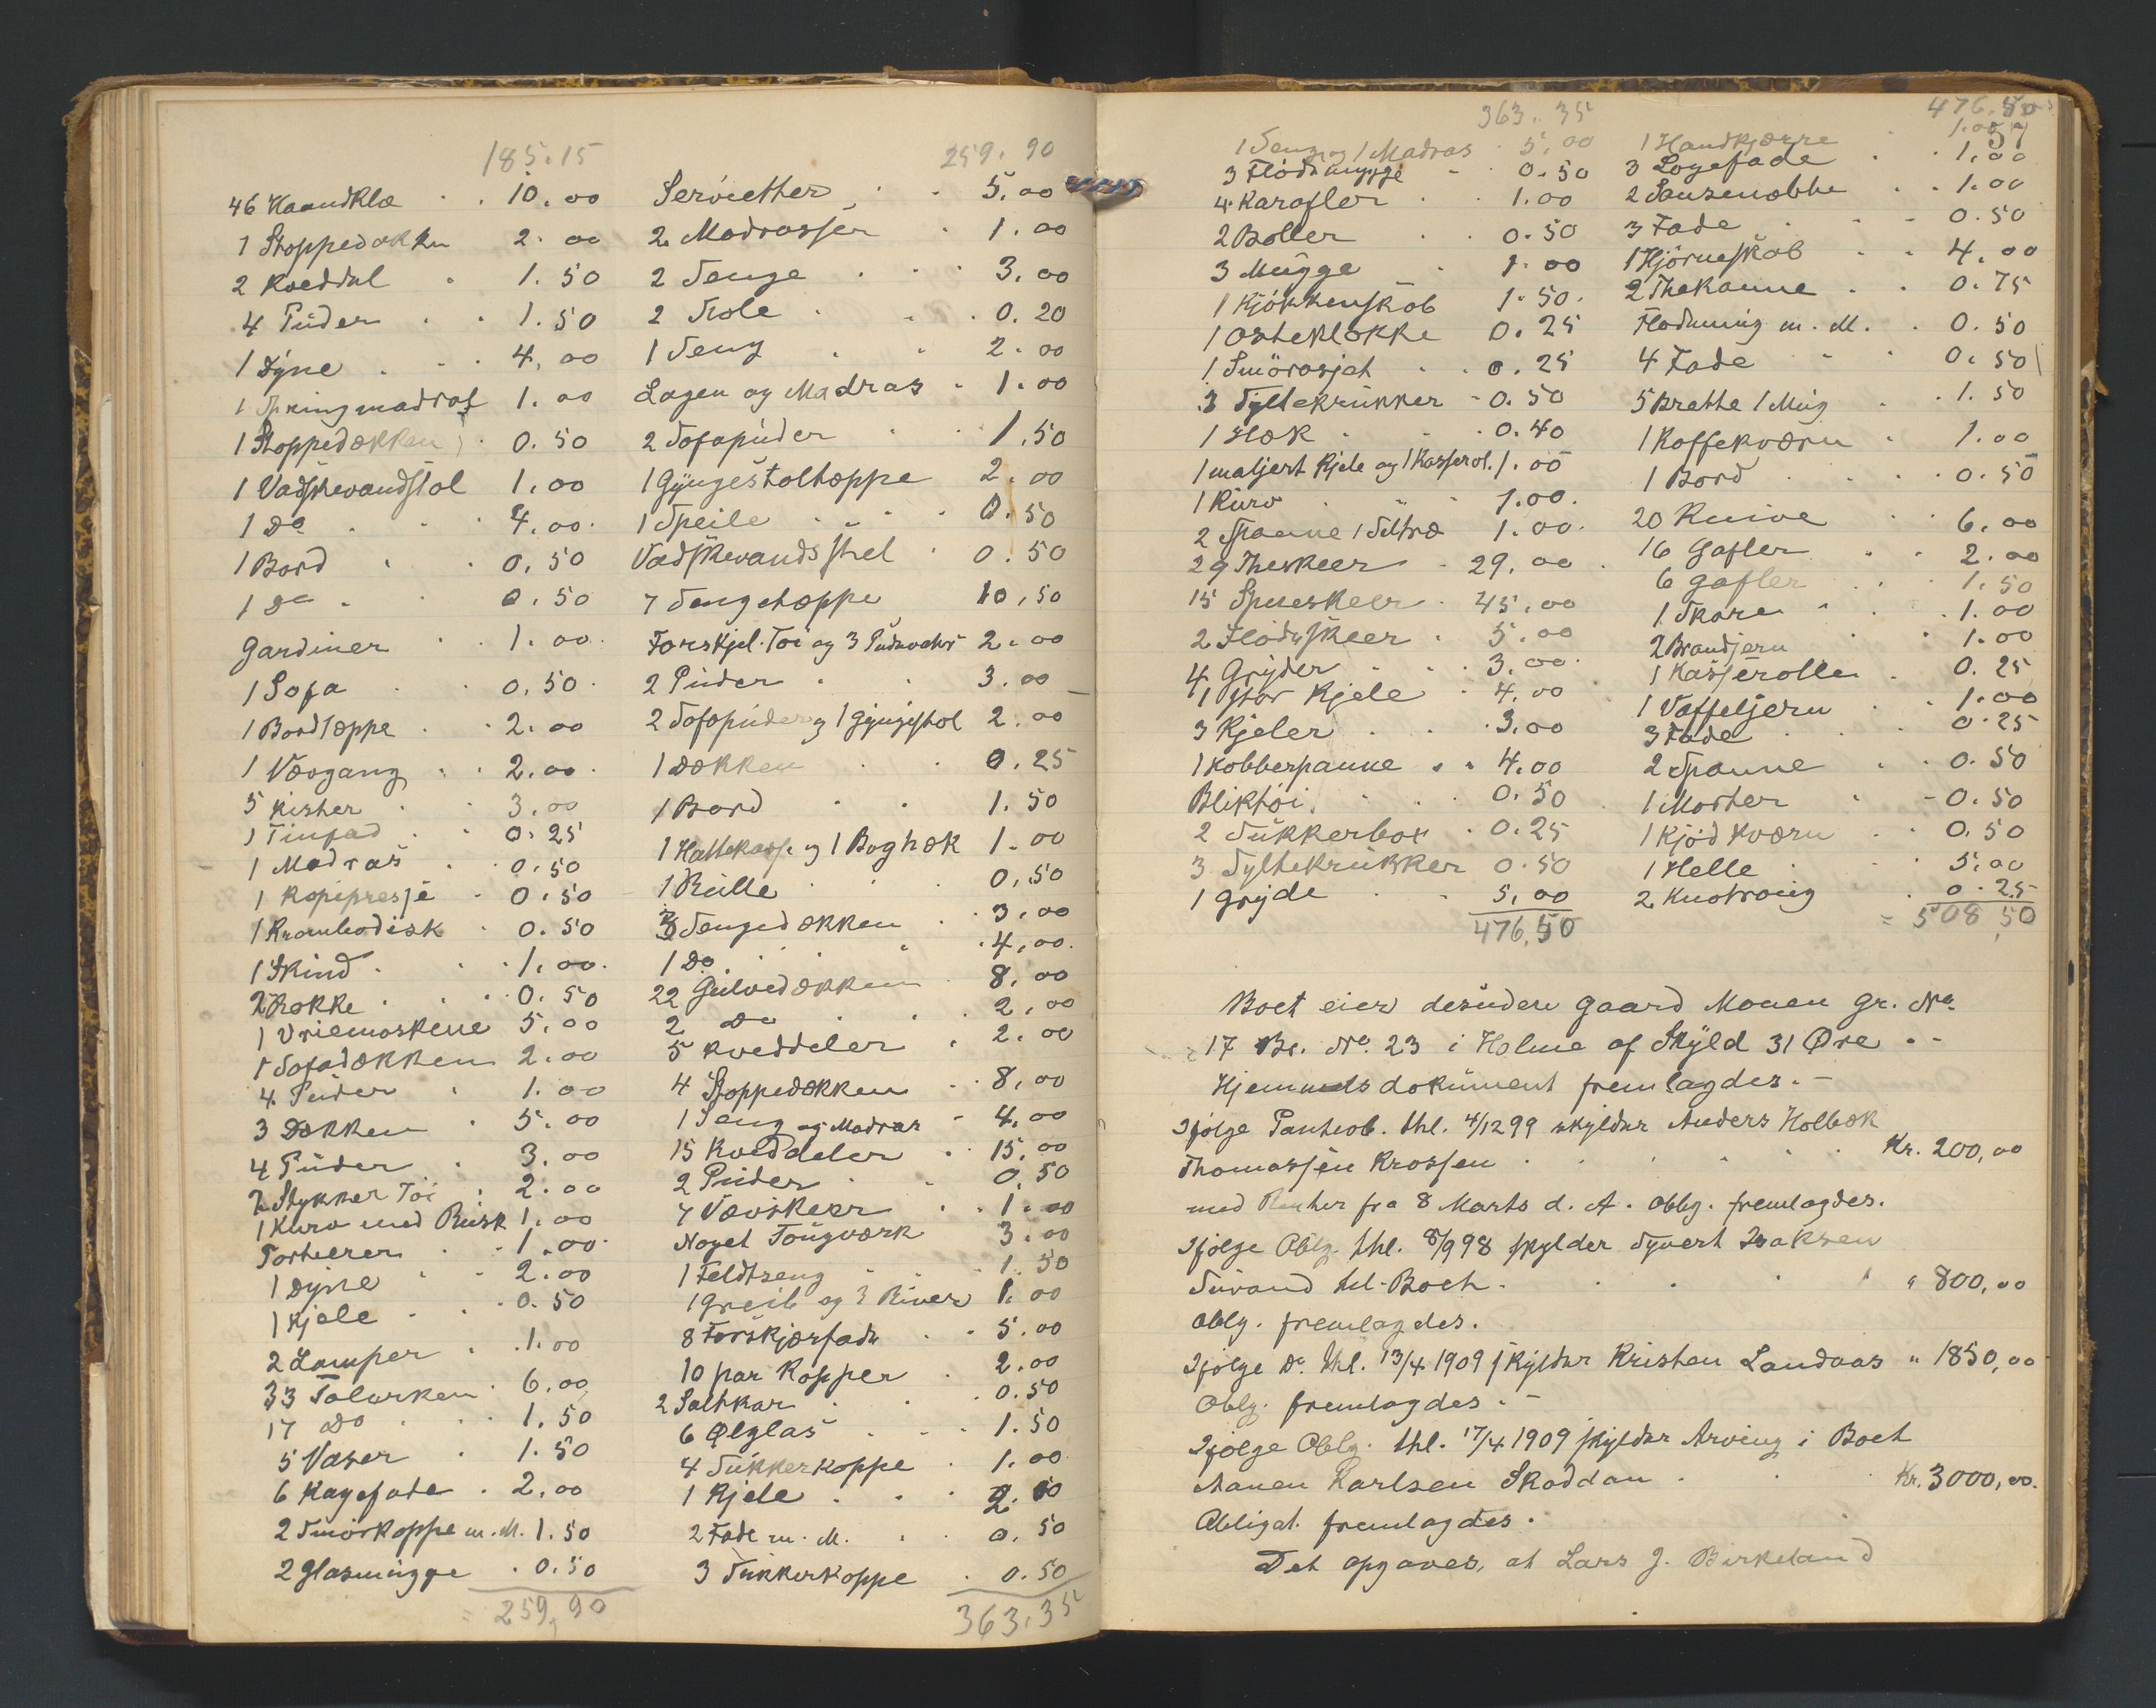 185.15
46 Haandklæ 10.00
1 Stoppedækken 2.00
2 Kveddel 1.50
4 Puder 1.50
1 Dyne 4.00
1 Springmadras 1.00
1 Stoppedækken 0.50
1 Vadskevandstol 1.00
1 Do 4.00
1 Bord 0.50
1 Do 0.50
Gardiner 1.00
1 Sofa 0.50
1 Bordtæppe 2.00
1 Vævgang 2.00
5 Kister 3.00
1 Tinfad 0.25
1 Madras 0.50
1 Kopipresse 0.50
1 Krambodisk 0.50
1 Skind 1.00
2 Rokke 0.50
1 Vriemaskine 5.00
1 Sofadækken 2.00
4 Puder 1.00
3 Dækken 5.00
4 Puder 3.00
2 Stykker Töi 2.00
1 Kurv med Rusk 1.00
Portierer 1.00
1 Dyne 2.00
1 Kjele 0.50
2 Lamper 1.00
33 Talerken 6.00
17 Do 1.50
5 Vaser 1.50
6 Kagefade 2.00
2 Smörkoppe m.M. 1.50
2 Glasmugge 0.50
= 259,90
259.90
Servietter 5.00
2 Madrasser 1.00
2 Senge 3.00
2 Stole 0.20
1 Seng 2.00
Lagen og Madras 1.00
2 Sofapuder 1.50
1 Gyngestoltæppe 2.00
1 Speile 0.50
Vadskevandsstel 0.50
7 Sengetæppe 10,50
Forskjel. Töi og 3 Pudevahr 2.00
2 Puder 3.00
2 Sofapuder og 1 Gyngestol 2.00
1 Dækken 0.25
1 Bord 1.50
1 Hattekasse og 1 Boghæk 1.00
1 Rulle 0,50
3 Sengedækken 3.00
1 Do 4.00
22 Gulvdækken 8.00
2 Do 2.00
5 Kveddeler 2.00
4 Stoppedækken 8,00
1 Seng og Madras 4.00
15 Kveddeler 15.00
2 Puder 0.50
7 Vævskeer 1.00
Noget Tougværk 3.00
1 Feldtseng 1.50
1 Greib og 3 River 1.00
8 Forskjærfade 5.00
10 par Kopper 2.00
2 Saltkar 0.50
6 Ølglas 1.50
4 Sukkerkoppe 1.00
1 Kjele 2.00
2 Fade m. M. 0.50
3 Sukkerkoppe 0.50
363.35
363.35
1 Seng og 1 Madras 5.00
3 Flödemugge 0.50
4 Karafler 1.00
2 Boller 0.50
3 Mugge 1.00
1 Kjökkenskab 1.50
1 Osteklokke 0.25
1 Smörasjet 0.25
3 Syltekrukker 0.50
1 Hæk 0.40
1 maljert Kjele og 1 Kasserol. 1.00
1 Kurv 1.00
2 Spanne 1 1.00
29 Theskeer 29.00
15 Spiseskeer 45,00
2 Flödeskeer 5.00
4 Gryder 3.00
1 stor Kjele 4.00
3 Kjeler 3,00
1 Kobberpanne 4.00
Bliktöi 0.50
2 Sukkerbox 0.25
3 Syltekrukker 0.50
1 Gryde 5,00
476,50
476.50
57
1 Handkjærre 1.00
3 Logefade 1.00
2 1.00
3 Fade 0.50
1 Hjörneskab 4.00
2 Thekanne 0.75
Flodmug m. M. 0.50
4 Fade 0.50
5 Brette 1 Mug 1.50
1 Kaffekværn 1.00
1 Bord 0.50
20 Knive 6.00
16 Gafler 2.00
6 Gafler 1.50
1 Skore 1.00
2 Brandjern 1.00
1 Kasserolle 0.25
1 Vaffeljern 1.00
3 Fade 0.25
2 Spanne 0.50
1 Morter 0.50
1 Kjöd kværn 0.50
1 Helle 5.00
2 0.25
= 508,50
Boet eier desuden Gaard Monen Gr. No.
17 Br. No. 23 i Holme af Skyld 31 Øre. -
Hjemmelsdokument fremlagdes. -
Ifölge Panteob. thl. 4/12 99 skylder Anders Holbæk
Thomassen Krossen Kr. 200,00
med Renter fra 8 Marts d. A. Oblg. fremlagdes.
Ifölge Oblg. thl. 8/9 98 skylder Syvert Isaksen
Suvand til Boet " 800,00
Oblg. fremlagdes.
Ifölge Do. thl. 13/4 1909 skylder Kristen Landaas " 1850,00
Oblg. fremlagdes. -
Ifölge Oblg. thl. 17/4 1909 skylder Arving i Boet
Aanen Karlsen Skoddan Kr. 3000,00.
Obligat. fremlagdes.
Det opgaves, at Lars J. Birkeland